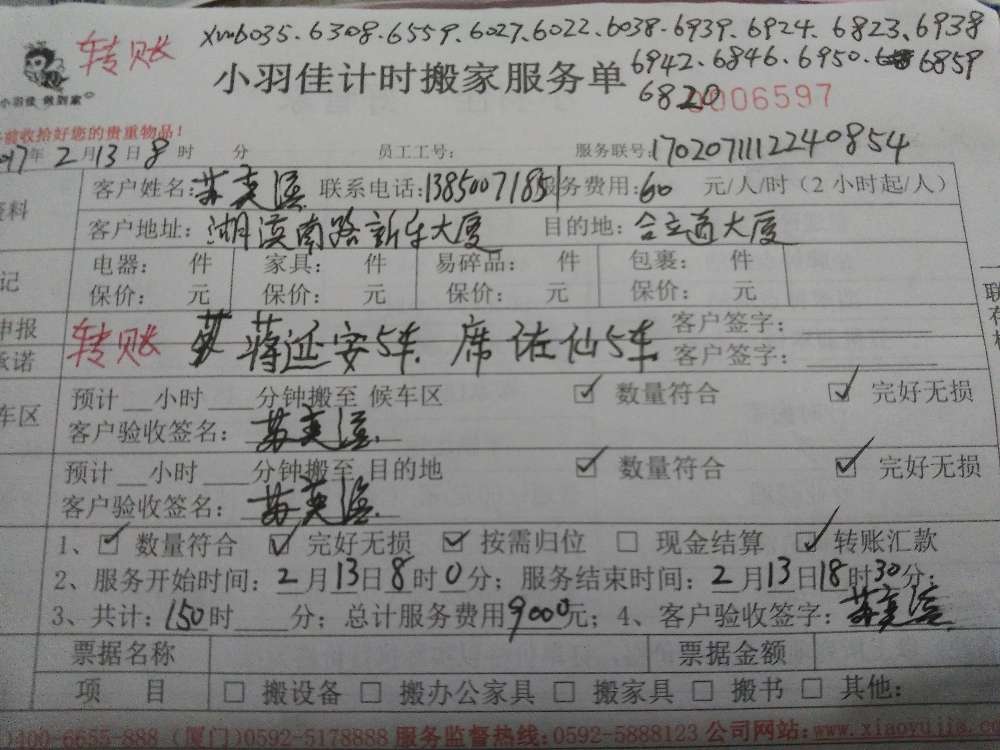 转账
xm6035.6308.6559.6027.6022.6038.6939.6924.6823.6938
6942.6846.6950. 6859
6820
小羽佳计时搬家服务单
0006597
小羽佳 做到家
前收拾好您的贵重物品!
2017年2月13日8时 分 员工工号: 服务联号:1702071112240854
资料
客户姓名:苏 联系电话:13850071851 服务费用:60 元/人/时(2小时起/人)
客户地址:湖滨南路新车大厦 目的地:合立道大厦
记
电器: 件 家具: 件 易碎品: 件 包裹: 件
保价: 元 保价: 元 保价: 元 保价: 元
申报
承诺
转账 蒋延安5车. 席佐仙5车
客户签字:
客户签字:
车区
预计 小时 分钟搬至 候车区 数量符合 完好无损
客户验收签名:苏
预计 小时 分钟搬至 目的地 数量符合 完好无损
客户验收签名:苏
1、数量符合 完好无损 按需归位 现金结算 转账汇款
2、服务开始时间:2月13日8时0分;服务结束时间:2月13日18时30分;
3、共计:150时 分;总计服务费用9000元;4、客户验收签字:苏
票据名称 票据金额
项 目 搬设备 搬办公家具 搬家具 搬书 其他:
400-6655-888 (厦门)0592-5178888 服务监督热线:0592-5888123 公司网站:www.xiaoyujia.c